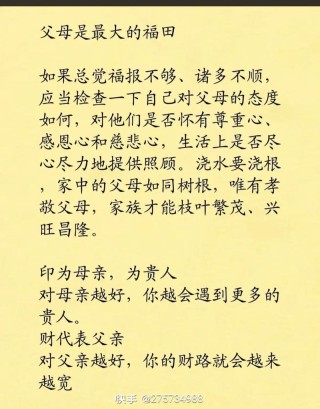 父母是最大的福田
如果总觉福报不够、诸多不顺，
应当检查一下自己对父母的态度
如何，对他们是否怀有尊重心、
感恩心和慈悲心，生活上是否尽
心尽力地提供照顾。浇水要浇根
，家中的父母如同树根，唯有孝
敬父母，家族才能枝叶繁茂、兴
旺昌隆。
印为母亲，为贵人
对母亲越好，你越会遇到更多的
贵人。
财代表父亲
对父亲越好，你的财路就会越来
越宽
快手 @275734988